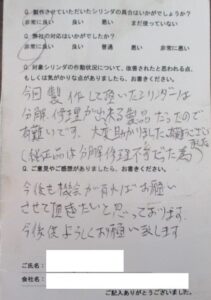 Q. 製作させていただいたシリンダの具合はいかがでしょうか？
非常に良い 良い 普通 悪い まだ使っていない
Q. 弊社の対応はいかがでしたか？
非常に良い 良い 普通 悪い 非常に悪い
Q. 対象シリンダの作動状況について、改善されたと思われる点、
もしくは気がかりな点がありましたら、お書きください。
今回製作して頂いたシリンダーは
分解、修理が出来る製品だったので
有難いです。大変助かりました。有難うございました
(純正品は分解修理不可だった為)
Q. ご意見やご感想がありましたら、お書きください。
今後も機会が有ればお願い
させて頂きたいと思っております。
今後共よろしくお願い致します
ご氏名：
会社名：
ご記入ありがとうございました。